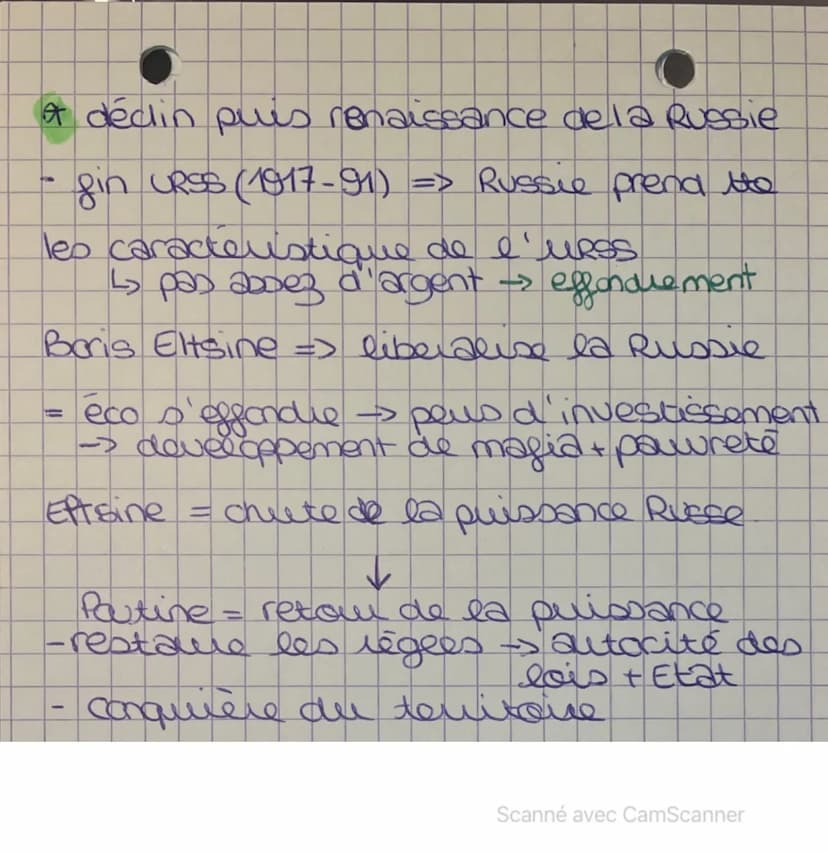 * déclin puis renaissance de la Russie
- fin URSS (1917-91) => Russie prend tte
les caractéristique de l'URSS
↳ pas assez d'argent → effondrement
Boris Eltsine => liberalise la Russie
= éco s'effondre → peus d'investissement
→ developpement de mafia + pauvreté
Eltsine = chute de la puissance Russe
↓
Poutine = retour de la puissance
- restaure les règles → autorité des
lois + Etat
- conquière du territoire
Scanné avec CamScanner